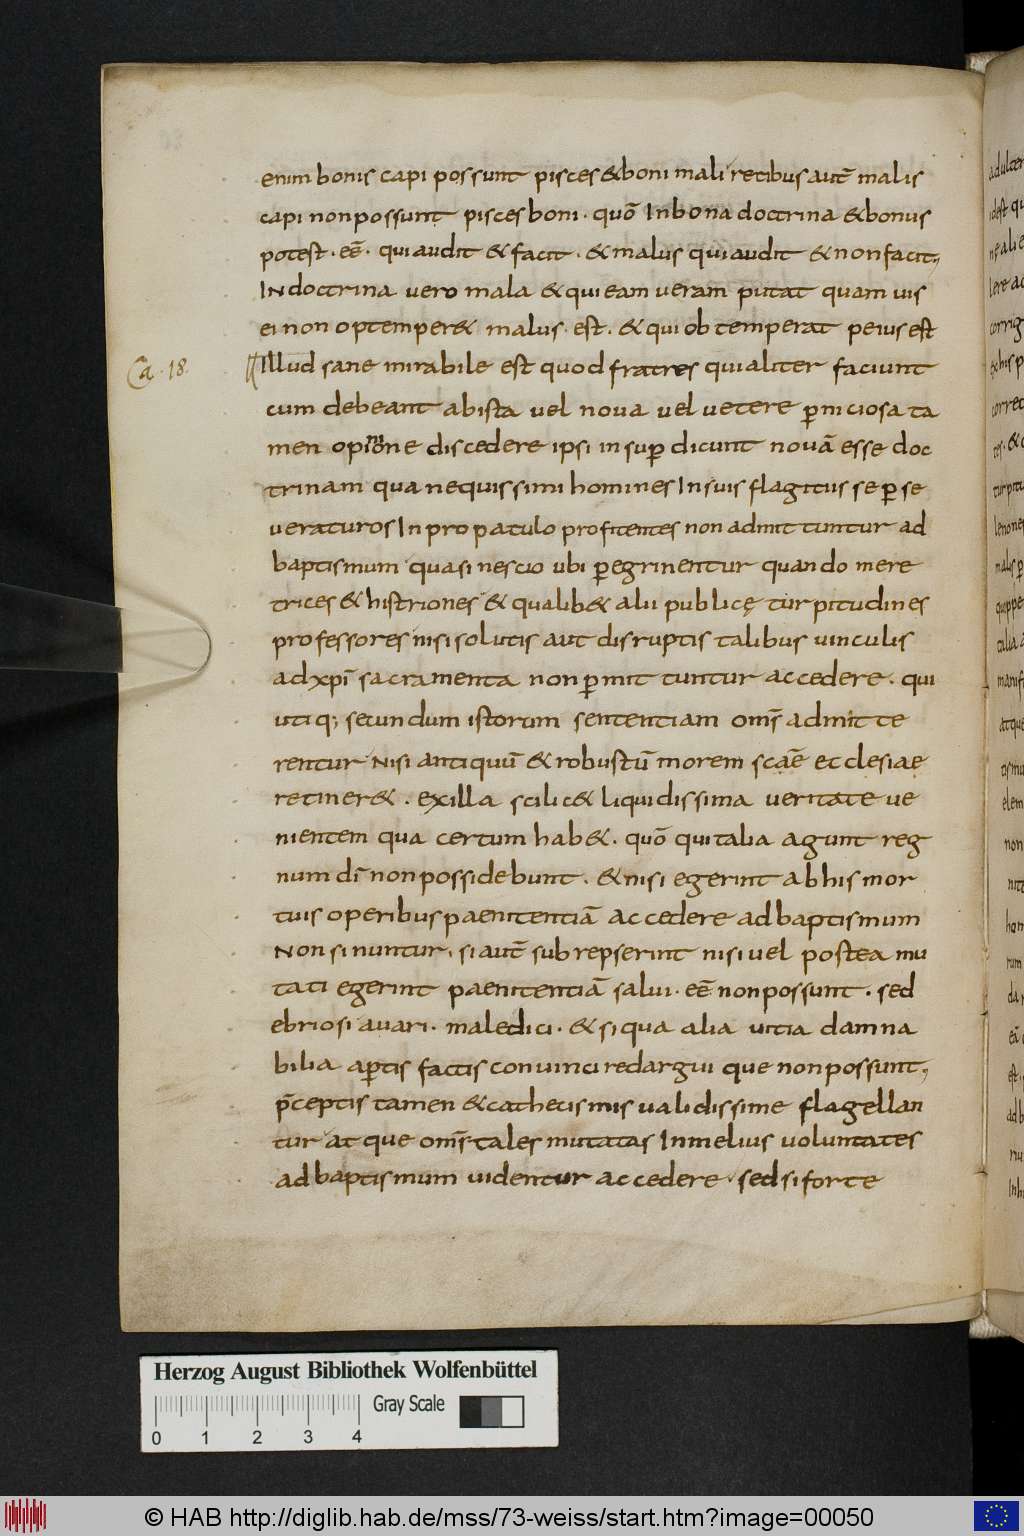 enim bonis capi possunt pisces & boni mali retibus autē malis
capi non possunt pisces boni · quō In bona doctrina & bonus
potest · eē · qui audit & facit · & malus qui audit & non facit,
IN doctrina vero mala & qui eam veram putat quam uis
ei non optemper& malus · est · & qui obtemperat peius est
Ca · 18 · Illud sane mirabile est quod fratres qui aliter faciunt
cum debeant ab ista uel noua uel uetere p̱niciosa ta
men opinione discedere ipsi insup̱ dicunt nouā esse doc
trinam qua nequissimi homines In suis flagitiis se p̱se
veraturos In propatulo profitentes non admittuntur ad
baptismum quasi nescio ubi p̱egrinentur quando mere
trices & histriones & qualib& alii publicę turpitudines
professores nisi solutis aut disruptis talibus uinculis
ad xpī sacramenta non p̱mittuntur accedere · qui
utiq; secundum istorum sententiam oms̄ admitte
rentur Nisi antiquū & robustū morem scāe ecclesiae
retiner& · ex illa scilic& liquidissima ueritate ue
nientem qua certum hab& · quō qui talia agunt reg
num dī non possidebunt · & nisi egerint ab his mor
tuis operibus paenitentiā accedere ad baptismum
Non sinuntur, si autē subrepserint nisi uel postea mu
tati egerint paenitentiā salui · eē non possunt · sed
ebriosi auari · maledici · & si qua alia uitia damna
bilia ap̱tis factis conuinci redargui que non possunt,
p̄ceptis tamen & cathecismis ualidissime flagellan
tur atque oms̄ tales mutatas In melius uoluntates
ad baptismum uidentur accedere · sed si forte
Herzog August Bibliothek Wolfenbüttel
Gray Scale
0 1 2 3 4
© HAB http://diglib.hab.de/mss/73-weiss/start.htm?image=00050